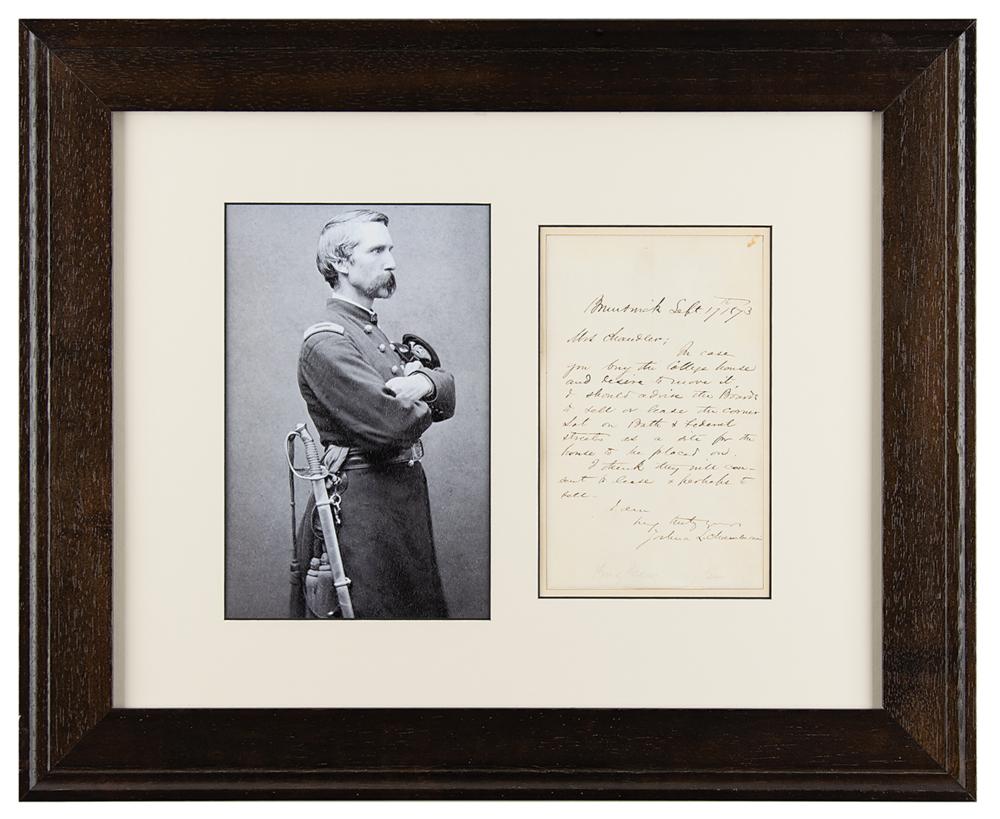 Brunswick Sept 17th 1873
Mrs Chandler;
In case
you buy the College house
and desire to move it
I should advise the Boards
to sell or lease the corner
Lot on Bath & Federal
streets as a site for the
house to be placed on.
I think they will con-
sent to lease & perhaps to
sell.
I am
very truly yours
Joshua L. Chamberlain